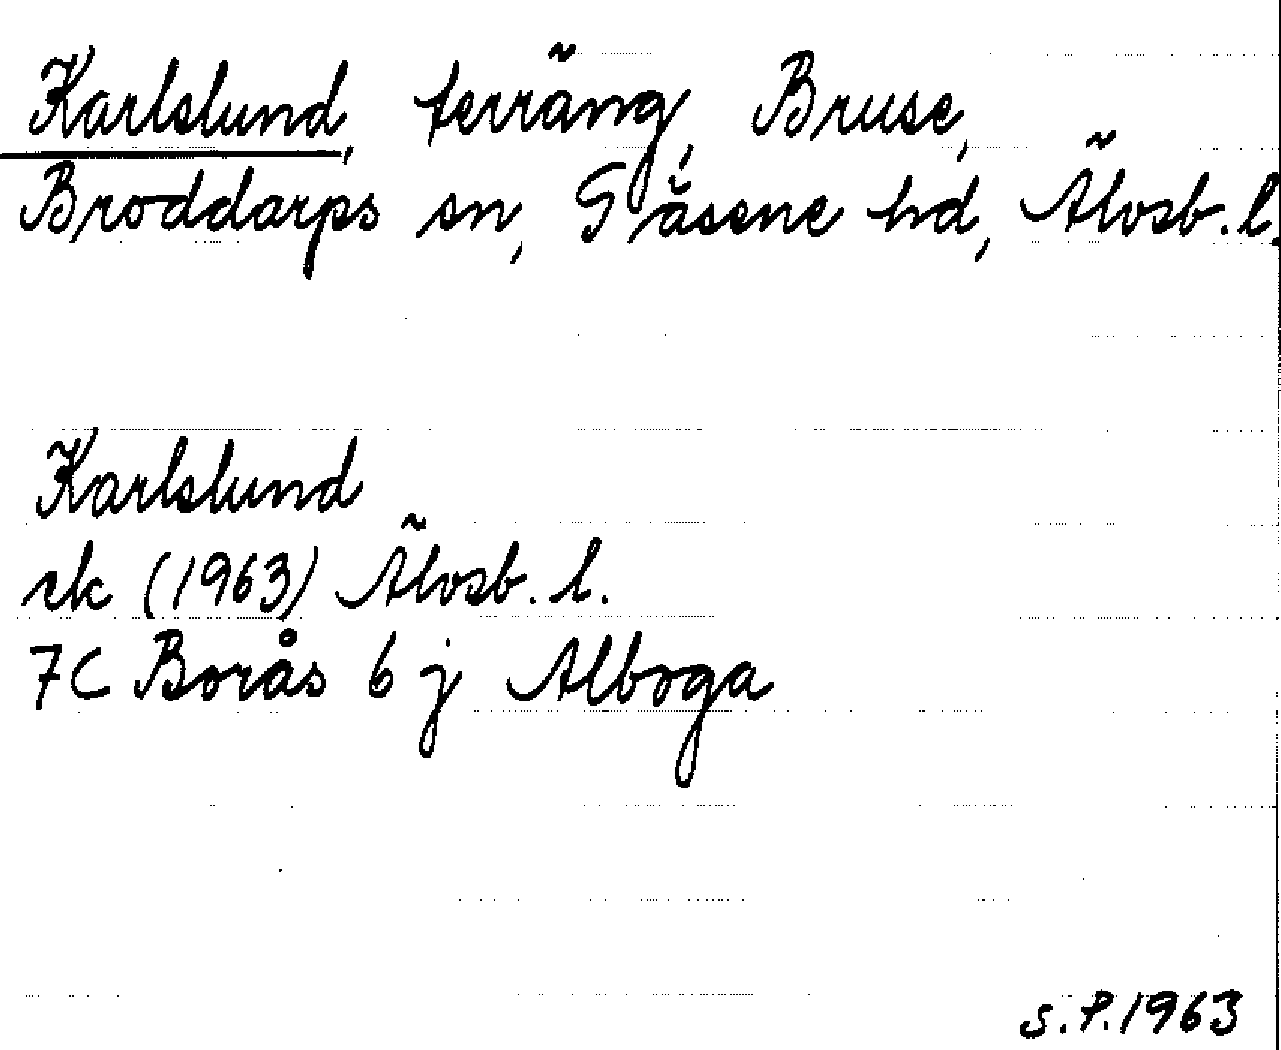 Karlslund, terräng, Bruse,
Broddarps sn, Gäsene hd, Älvsb. l.
Karlslund
rk (1963) Älvsb. l.
7C Borås 6 j Alboga
S.P. 1963